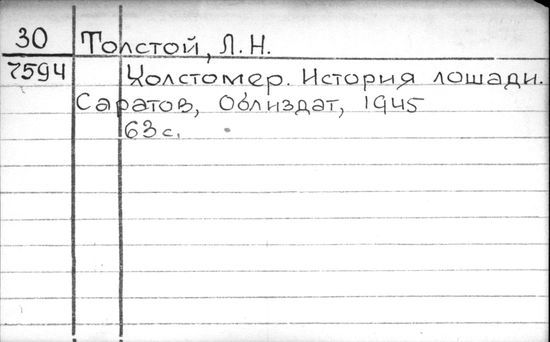 30 Толстой, Л. Н.
7594 Холстомер. История лошади.
Саратов, Облиздат, 1945
63 с.